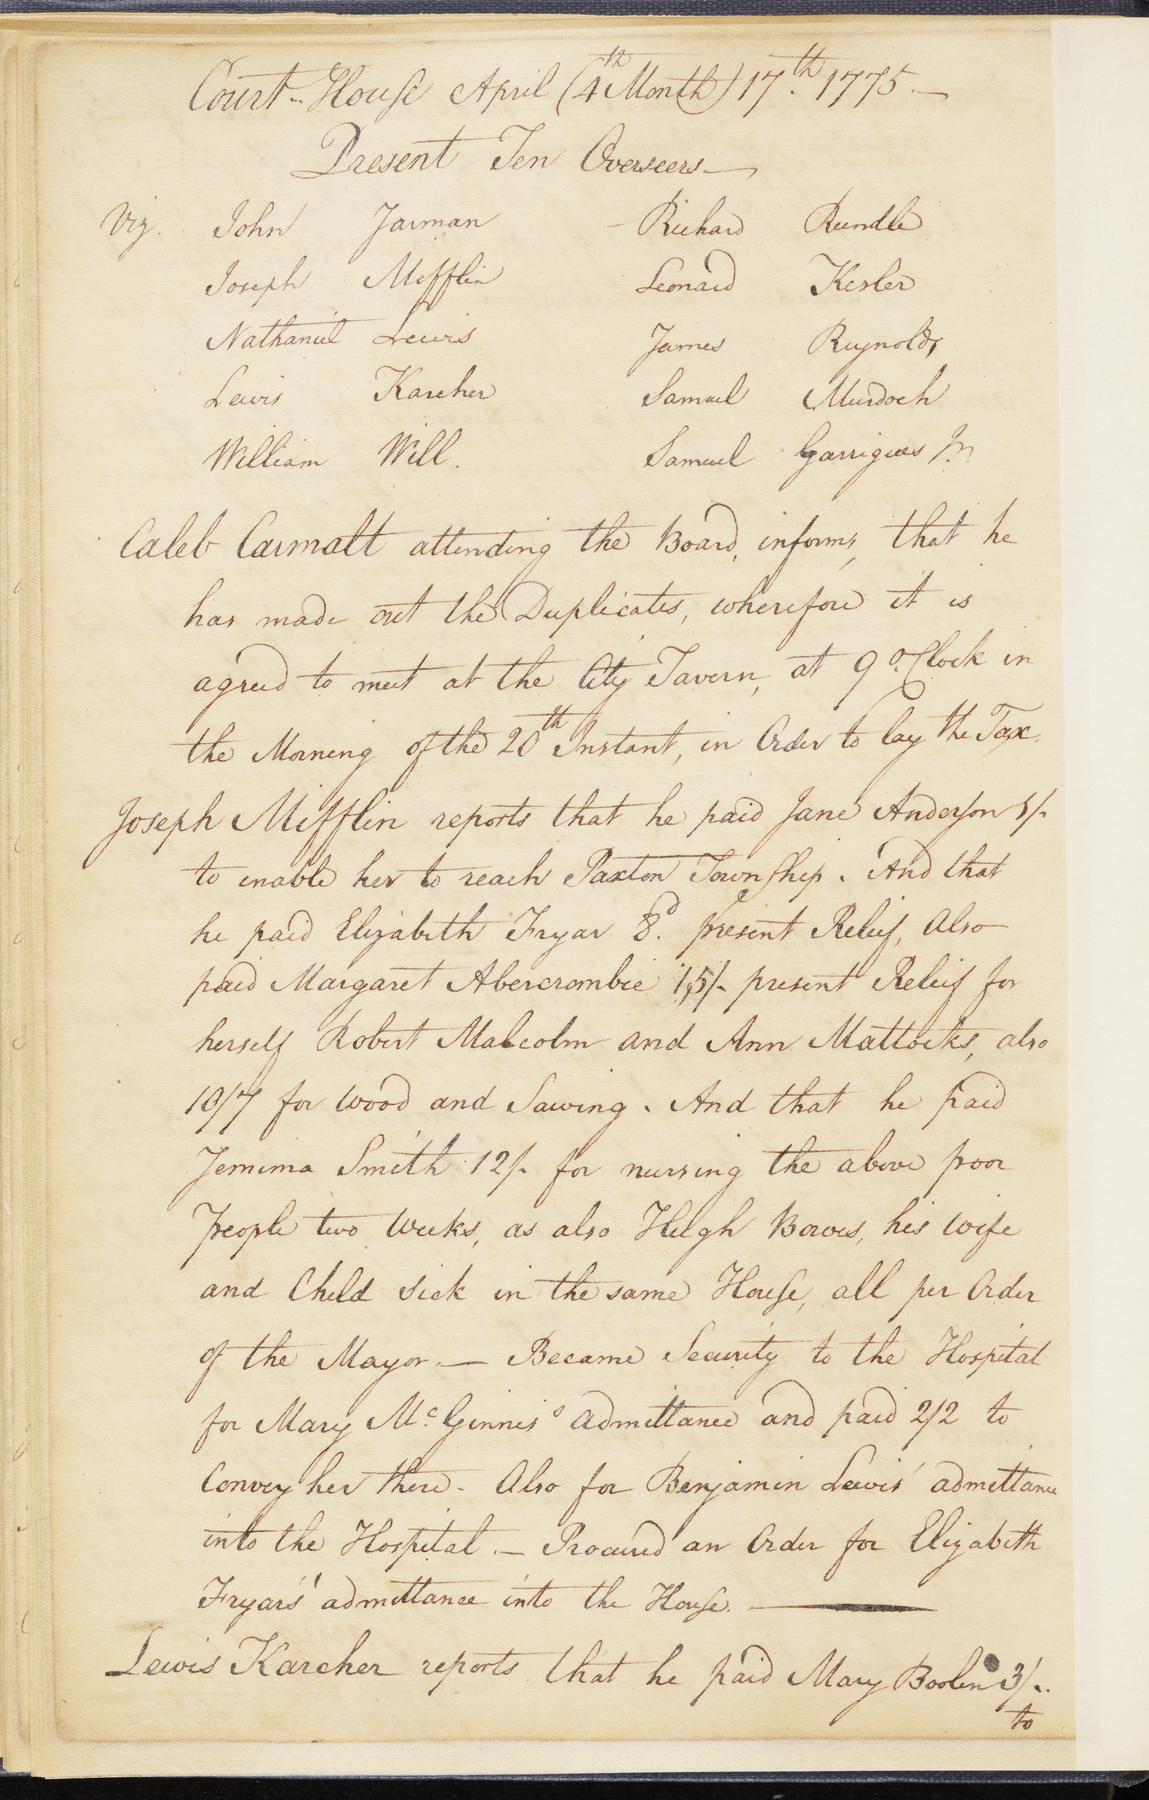 Court-House April (4th Month) 17th. 1775.—
Present Ten Overseers—
Viz. John Jarman - Richard Rundle
Joseph Mifflin Leonard Kesler
Nathaniel Lewis James Reynolds
Lewis Karcher Samuel Murdoch
William Will. Samuel Garrigues Jr.
Caleb Carmalt attending the Board, informs, that he
has made out the Duplicates, wherefore it is
agreed to meet at the City Tavern, at 9 o.Clock in
the Morning of the 20th Instant, in Order to lay the Tax.
Joseph Mifflin reports that he paid Jane Anderson 5/-
to enable her to reach Paxton Township. And that
he paid Elizabeth Fryar 8d. present Relief, Also
paid Margaret Abercrombie 15/- present Releif for
herself Robert Malcolm and Ann Mattocks, also
10/7 for Wood and Sawing. And that he paid
Jemima Smith 12/- for nursing the above poor
People two Weeks, as also Hugh Bowes, his Wife
and Child sick in the same House, all per Order
of the Mayor.— Became Security to the Hospital
for Mary McGinnis's admittance and paid 2/2 to
Convey her there. Also for Benjamin Lewis' admittance
into the Hospital.— Procured an Order for Elizabeth
Fryar's' admittance into the House. —
Lewis Karcher reports that he paid Mary Boolen 3/-.
to